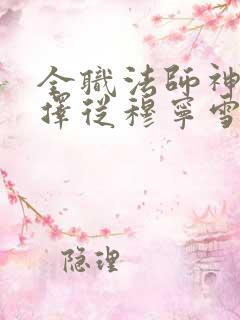 全職法師神
擇從穆寧雪
隐理